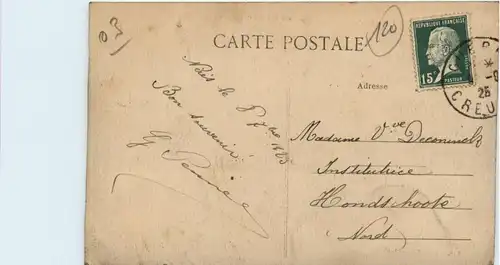 CARTE POSTALE
120
REPUBLIQUE FRANÇAISE
15
PASTEUR
25
CREU
Adresse
le 8
Bon souvenir
Madame Vve Deconinck
Institutrice
Hondschoote
Nord